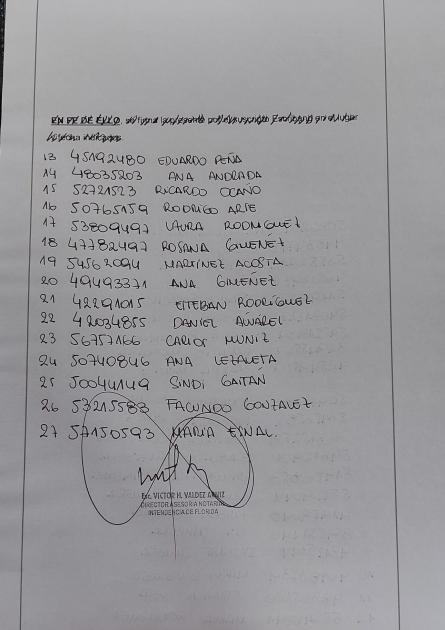 EN FE DE ELLO
13 45192480 EDUARDO PEÑA
14 48035203 ANA ANDRADA
15 52721523 RICARDO OCAÑO
16 50765159 RODRIGO
17 53809497 LAURA RODRIGUEZ
18 47782497 ROSANA GIMENEZ
19 54562094 MARTINEZ ACOSTA
20 49493371 ANA GIMENEZ
21 42291015 ESTEBAN RODRÍGUEZ
22 42034855 DANIEL ALVAREZ
23 56757166 CARLOS MUNIZ
24 50740846 ANA
25 50044149 SINDI GAITÁN
26 53215583 FACUNDO GONZALEZ
27 57150593 MARIA
Esc. VICTOR H. VALDEZ
DIRECTOR ASESORIA NOTARIAL
INTENDENCIA DE FLORIDA